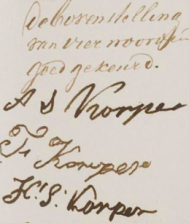 de bovenstelling
van vier woorden
goed gekeurd.
A S Korper
T. Korper
H. S. Korper